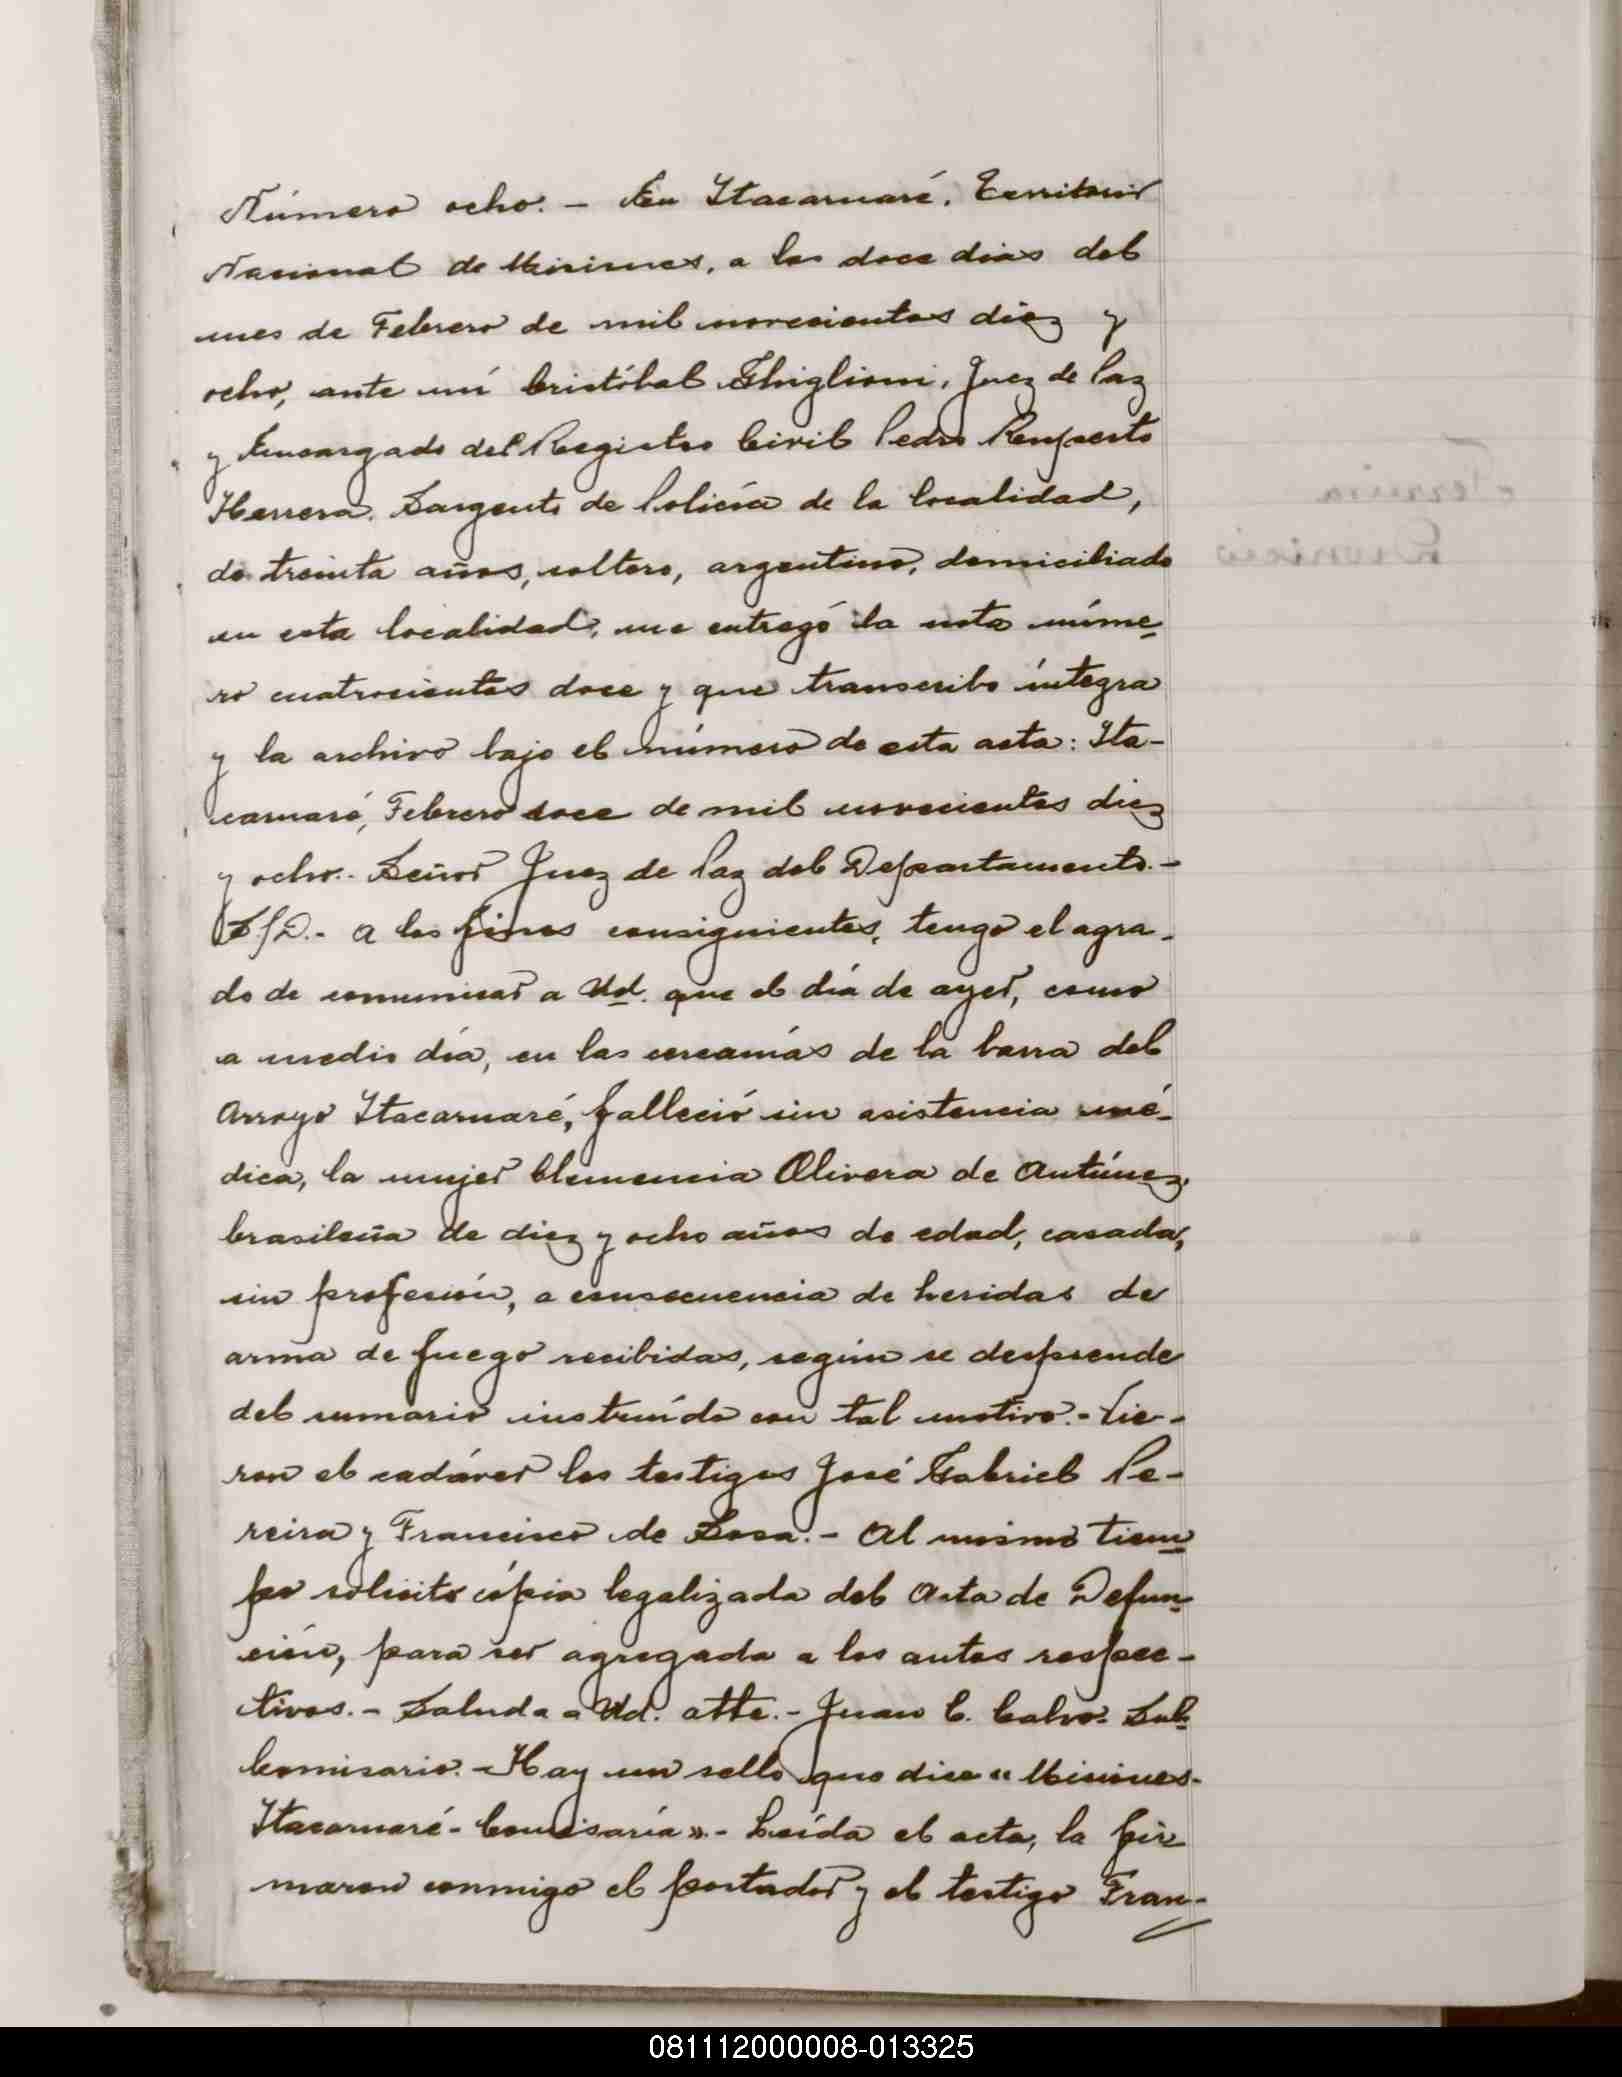 Número ocho. - En Itacaruaré, Territorio
Nacional de Misiones, a los doce dias del
mes de Febrero de mil novecientos diez y
ocho, ante mí Cristóbal Ghiglioni, Juez de Paz
y Encargado del Registro Civil Pedro Ruperto
Herrera. Sargento de Policía de la localidad,
de treinta años, soltero, argentino, domiciliado
en esta localidad, me entregó la nota núme-
ro cuatrocientos doce y que transcribo íntegra
y la archivo bajo el número de esta acta: Ita-
caruaré, Febrero doce de mil novecientos diez
y ocho.- Señor Juez de Paz del Departamento.-
S/D.- A los fines consiguientes, tengo el agra-
do de comunicar a Ud. que el día de ayer, como
a medio día, en las cercanías de la barra del
Arroyo Itacaruaré, falleció sin asistencia mé-
dica, la mujer Clemencia Olivera de Antúnez,
brasileña de diez y ocho años de edad, casada,
sin profesión, a consecuencia de heridas de
arma de fuego recibidas, según se desprende
del sumario instruído con tal motivo.- Vie-
ron el cadáver los testigos José Gabriel Pe-
reira y Francisco de Sosa.- Al mismo tiem-
po solicito cópia legalizada del Acta de Defun-
ción, para ser agregada a los autos respec-
tivos.- Saluda a Ud. atte.- Juan C. Calvo- Sub-
Comisario.- Hay un sello que dice "Misiones-
Itacaruaré-Comisaría".- Leída el acta, la fir
maron conmigo el portador y el testigo Fran-
081112000008-013325